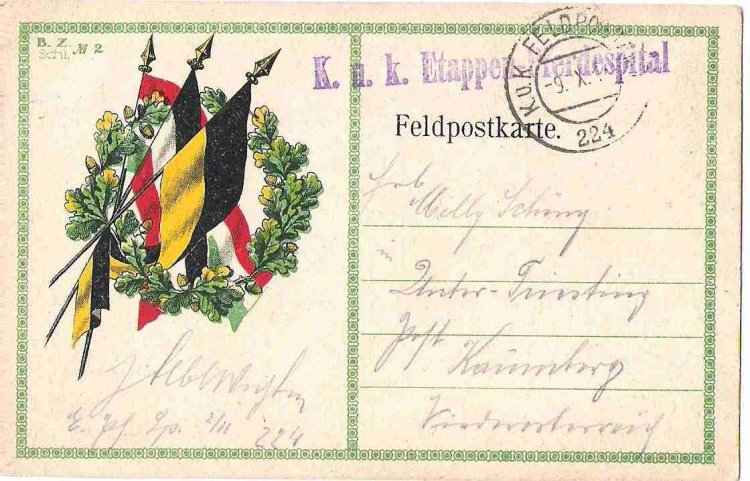 B. Z.
Schl. № 2
K. u. k. Etappen-Pferdespital
K.u.K. FELDPO
-9. X. 1
224
Feldpostkarte.
Melly Schöny
in
Unter-Triesting
Post
Kaumberg
Niederösterreich
2/II 224